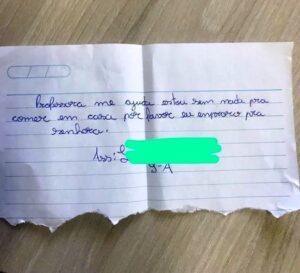 Professora me ajuda estou sem nada pra
comer em casa por favor eu emproro pra
senhora.
Ass: L
9-A